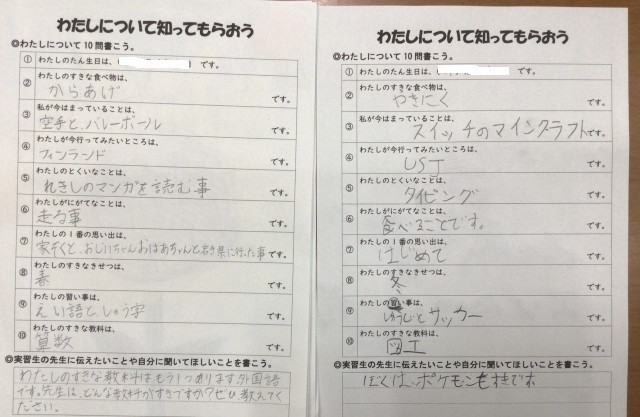 わたしについて知ってもらおう
◎わたしについて10問書こう。
① わたしのたん生日は、( )です。
② わたしのすきな食べ物は、
からあげ です。
③ 私が今はまっていることは、
空手と、バレーボール です。
④ わたしが今行ってみたいところは、
フィンランド です。
⑤ わたしのとくいなことは、
れきしのマンガを読む事 です。
⑥ わたしがにがてなことは、
走る事 です。
⑦ わたしの1番の思い出は、
家ぞくと、おじいちゃんおばあちゃんと岩手県に行った事 です。
⑧ わたしのすきなきせつは、
春 です。
⑨ わたしの習い事は、
えい語としゅう字 です。
⑩ わたしのすきな教科は、
算数 です。
◎実習生の先生に伝えたいことや自分に聞いてほしいことを書こう。
わたしのすきな教科はもう1つあります。外国語
です。先生は、どんな教科がすきですか?ぜひ教えてく
ださい。
わたしについて知ってもらおう
◎わたしについて10問書こう。
① わたしのたん生日は、( )です。
② わたしのすきな食べ物は、
やきにく です。
③ 私が今はまっていることは、
スイッチのマインクラフト です。
④ わたしが今行ってみたいところは、
USJ です。
⑤ わたしのとくいなことは、
タイピング です。
⑥ わたしがにがてなことは、
食べることです。 です。
⑦ わたしの1番の思い出は、
はじめて です。
⑧ わたしのすきなきせつは、
冬 です。
⑨ わたしの習い事は、
しゅうじとサッカー です。
⑩ わたしのすきな教科は、
図工 です。
◎実習生の先生に伝えたいことや自分に聞いてほしいことを書こう。
ぼくは、ポケモンもすきです